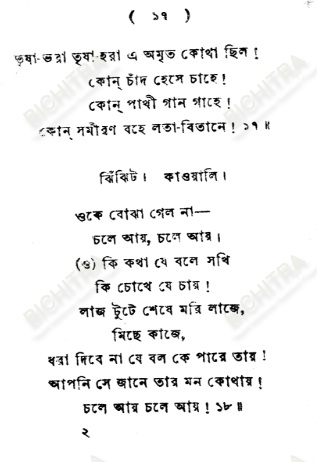 ( ১৭ )
তৃষা-ভরা তৃষা-হরা এ অমৃত কোথা ছিল !
কোন্ চাঁদ হেসে চাহে !
কোন্ পাখী গান গাহে !
কোন্ সমীরণ বহে লতা-বিতানে ! ১৭ ॥
ঝিঁঝিট। কাওয়ালি।
ওকে বোঝা গেল না—
চলে আয়, চলে আয়।
(ও) কি কথা যে বলে সখি
কি চোখে যে চায় !
লাজ টুটে শেষে মরি লাজে,
মিছে কাজে,
ধরা দিবে না যে বল কে পারে তায় !
আপনি সে জানে তার মন কোথায় !
চলে আয় চলে আয় ! ১৮ ॥
২
BICHITRA
BICHITRA
BICHITRA
BICHITRA